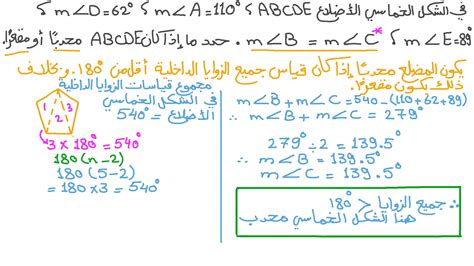 في الشكل الخماسي الأضلاع ABCDE ؟ m∠A = 110° ؟ m∠D = 62° ؟
m∠E = 89° ؟ m∠B = m∠C* . حدد ما إذا كان ABCDE محدبًا أو مقعرًا.
يكون المضلع محدبًا إذا كان قياس جميع الزوايا الداخلية أقل من 180°. و بخلاف
ذلك يكون مقعرًا.
مجموع قياسات الزوايا الداخلية
في الشكل الخماسي
الأضلاع = 540°
1 2 3
3 x 180° = 540°
180(n-2)
180(5-2)
= 180 x 3 = 540°
m∠B + m∠C = 540 - (110+62+89)
∴ m∠B + m∠C = 279°
279° ÷ 2 = 139.5°
∴ m∠B = 139.5°
∴ m∠C = 139.5°
∴ جميع الزوايا < 180°
هذا الشكل الخماسي محدب